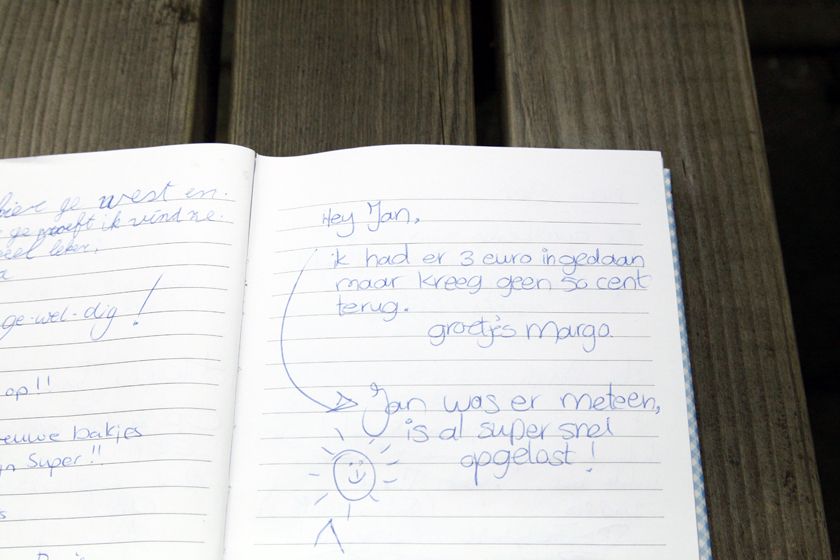 ge west en.
ge proeft ik vind ze
lekker.
ge-wel-dig!
op!!
bakjes
Super!!
Hey Jan,
ik had er 3 euro ingedaan
maar kreeg geen 50 cent
terug.
groetjes Margo.
Jan was er meteen,
is al super snel
opgelost!